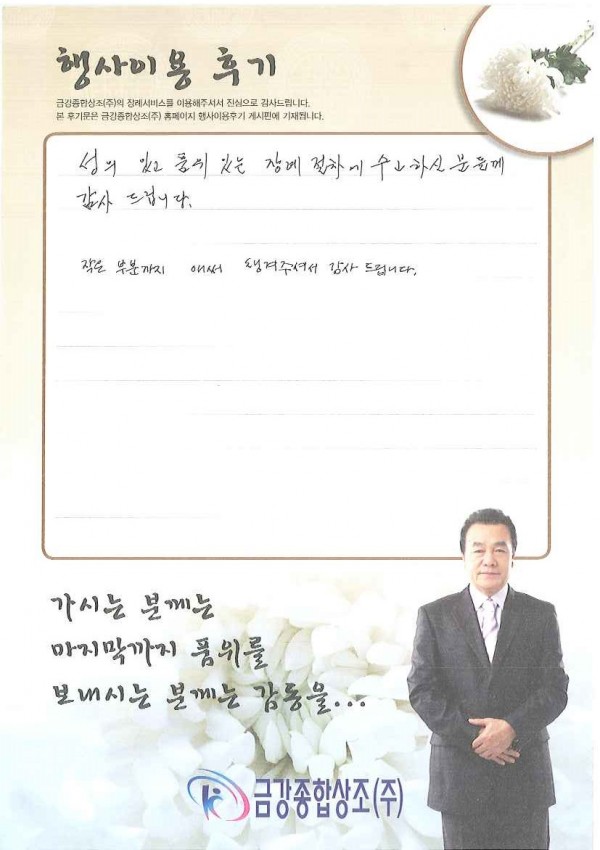 행사이용 후기
금강종합상조(주)의 장례서비스를 이용해주셔서 진심으로 감사드립니다.
본 후기문은 금강종합상조(주) 홈페이지 행사이용후기 게시판에 기재됩니다.
성의 있고 품위 있는 장례 절차에 수고하신 분들께
감사 드립니다.
작은 부분까지 애써 챙겨주셔서 감사 드립니다.
가시는 분께는
마지막까지 품위를
보내시는 분께는 감동을...
금강종합상조(주)